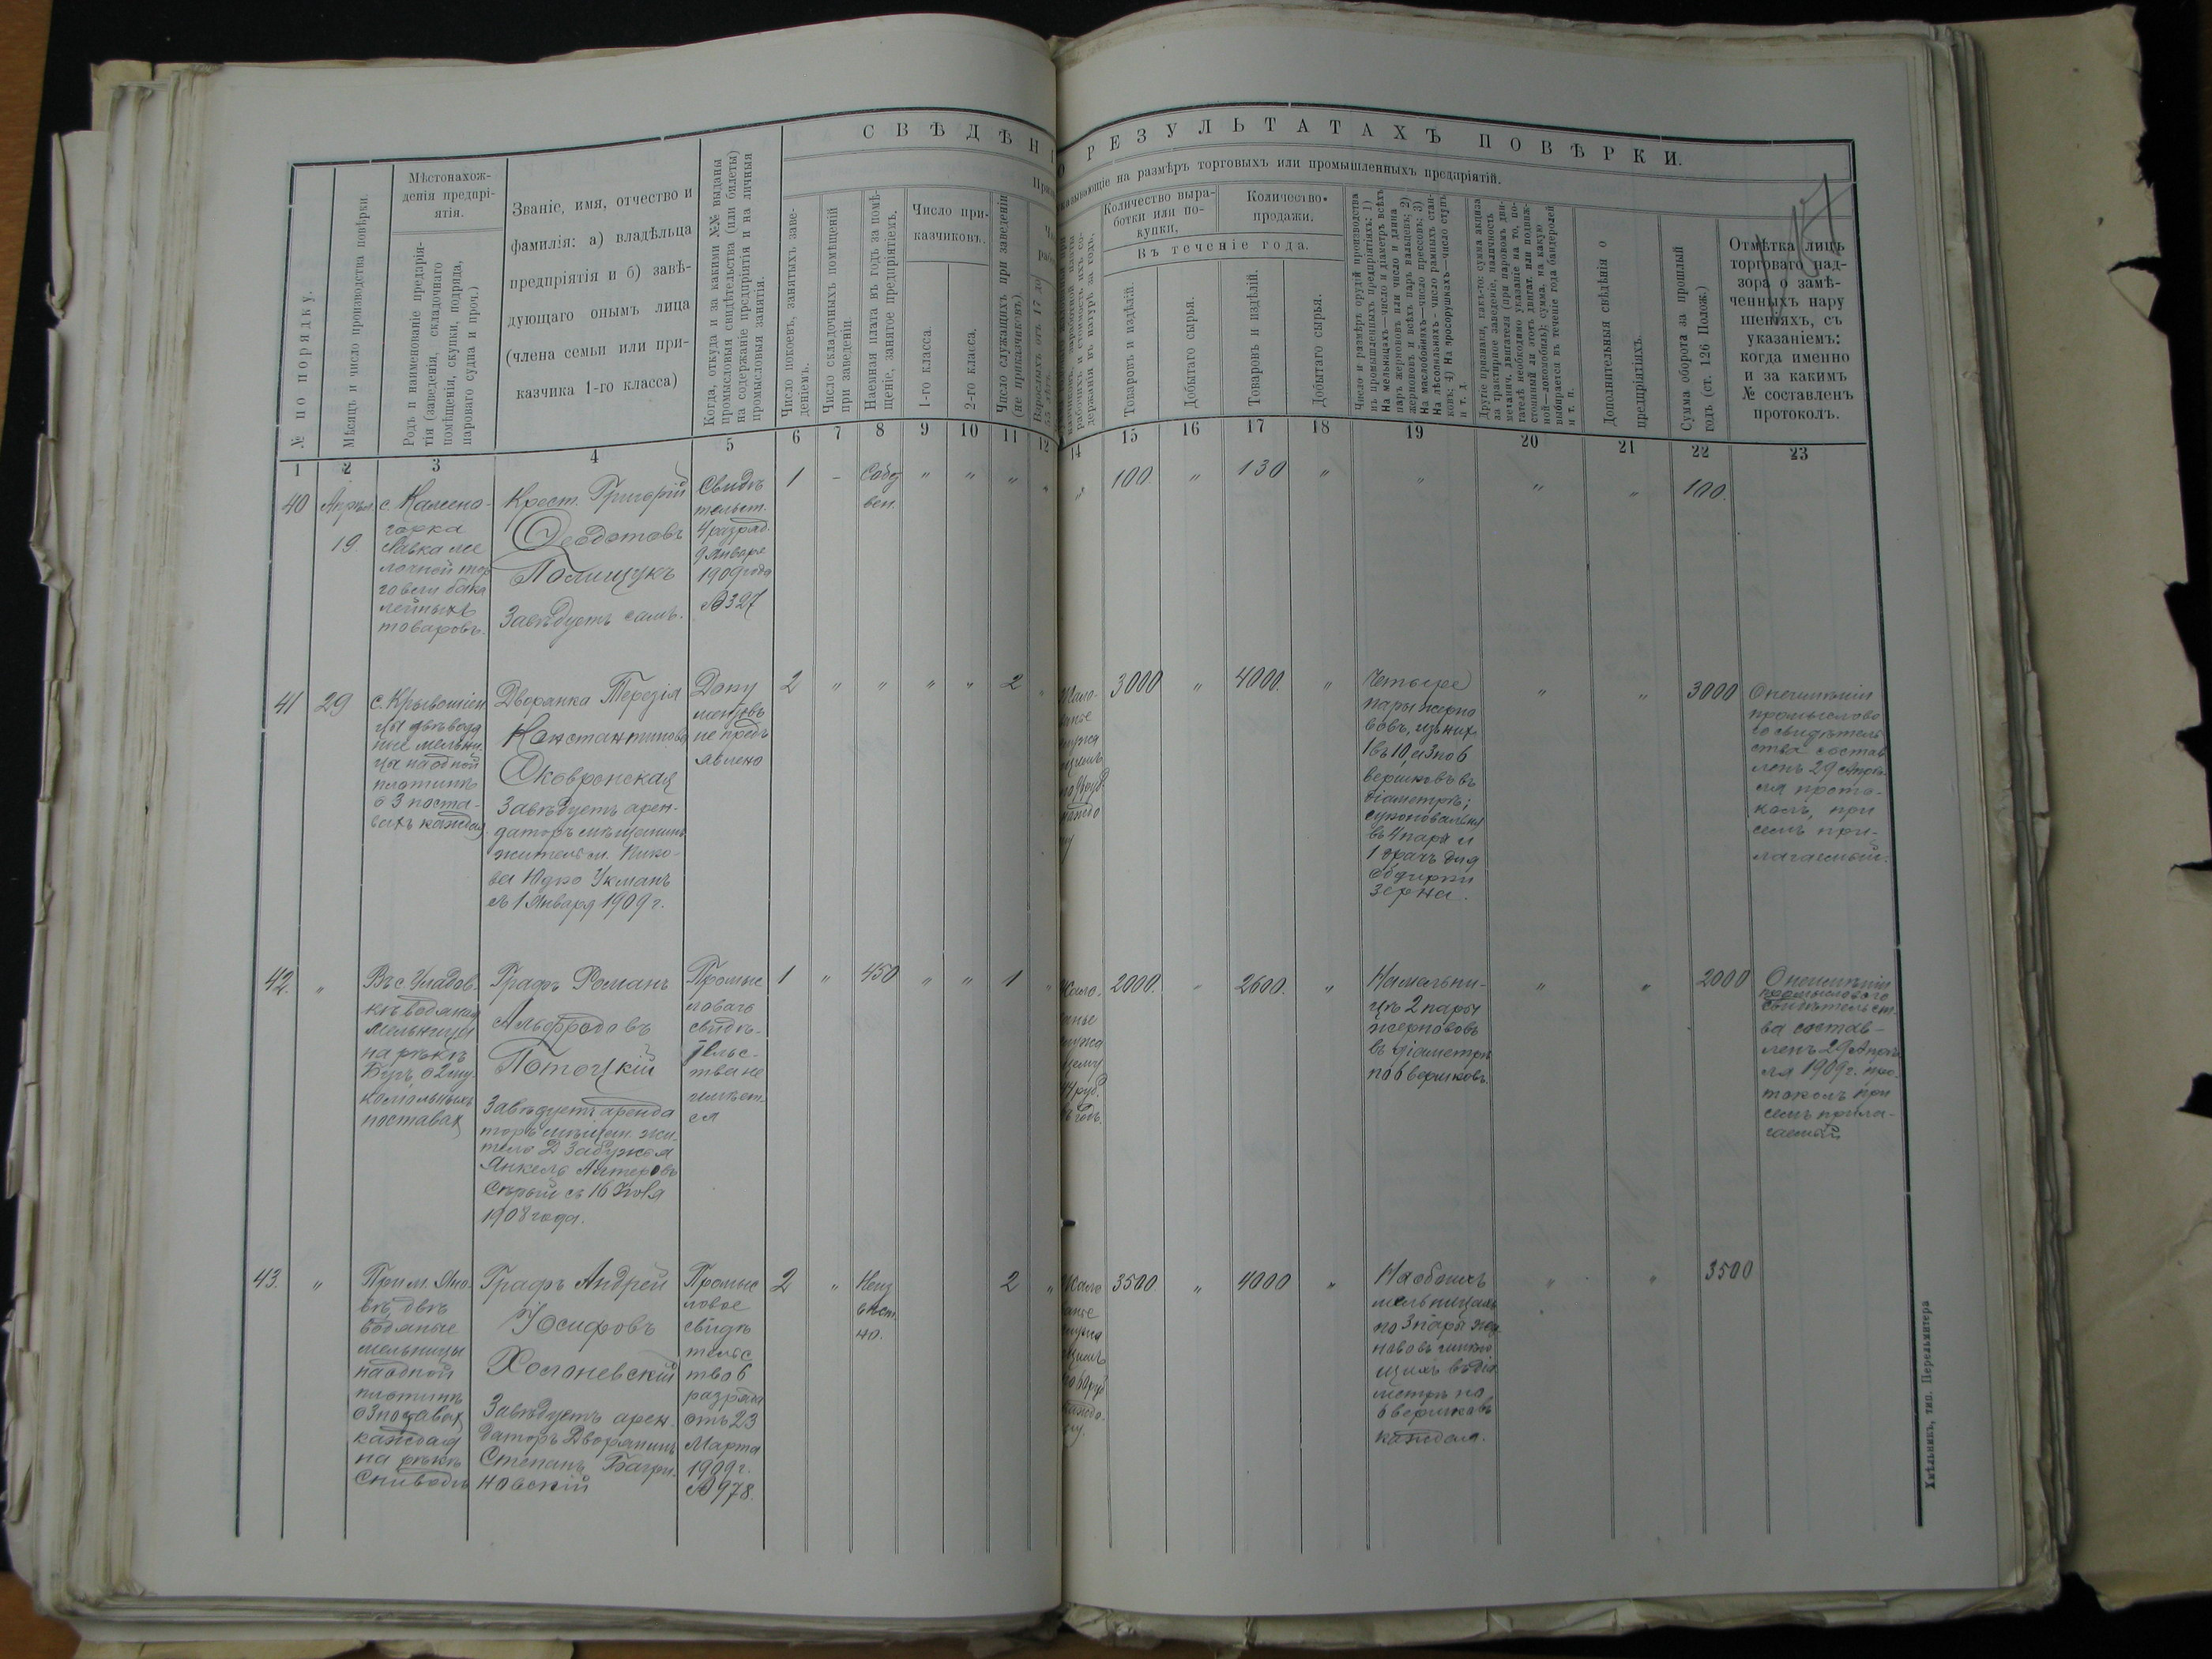 СВѢДѢНІ
О РЕЗУЛЬТАТАХЪ ПОВѢРКИ.
указывающіе на размѣръ торговыхъ или промышленныхъ предпріятій.
№ по порядку.
Мѣсяцъ и число производства повѣрки.
Мѣстонахож-
денія предпрі-
ятія.
Родъ и наименованіе предпрія-
тія (заведенія, складочнаго
помѣщенія, скупки, подряда,
парового судна и проч.)
Званіе, имя, отчество и
фамилія: а) владѣльца
предпріятія и б) завѣ-
дующаго онымъ лица
(члена семьи или при-
казчика 1-го класса)
Когда, откуда и за какими №№ выданы
промысловыя свидѣтельства (или билеты)
на содержаніе предпріятія и на личныя
промысловыя занятія.
Число покоевъ, занятыхъ заве-
деніемъ.
Число складочныхъ помѣщеній
при заведеніи.
Наемная плата въ годъ за помѣ-
щеніе, занятое предпріятіемъ.
Число при-
казчиковъ.
1-го класса.
2-го класса.
Число служащихъ при заведеніи
(не приказчиковъ.)
Взрослыхъ отъ 17 до
Количество выра-
ботки или по-
купки.
Количество
продажи.
Въ теченіе года.
Товаровъ и издѣлій.
Добытаго сырья.
Товаровъ и издѣлій.
Добытаго сырья.
Число и размѣръ орудій производства
въ промышленныхъ предпріятіяхъ: 1)
На мельницахъ—число и діаметръ всѣхъ
паръ жернововъ или число и длина
жернововъ и всѣхъ паръ вальцевъ; 2)
На маслобойняхъ—число прессовъ; 3)
На лѣсопильняхъ - число рамныхъ стан-
ковъ; 4) На просорушкахъ—число ступъ
и т. д.
Другіе признаки, какъ-то: сумма акциза
за трактирное заведеніе, наличность
механич. двигателя (при паровомъ дви-
гателѣ необходимо указаніе на то, по-
стоянный ли этотъ двигат. или подвиж-
ной—локомобиль); сумма, на какую
выбирается въ теченіе года бандеролей
и т. п.
Дополнительныя свѣдѣнія о
предпріятіяхъ.
Сумма оборота за прошлый
годъ (ст. 126 Полож.)
Отмѣтка лицъ
торговаго над-
зора о замѣ-
ченныхъ нару
шеніяхъ, съ
указаніемъ:
когда именно
и за какимъ
№ составленъ
протоколъ.
1 2 3 4 5 6 7 8 9 10 11 12 14 15 16 17 18 19 20 21 22 23
40
19
с. Камено-
горка
Лавка ме
лочной тор
говли бака
лейныхъ
товаровъ.
Крест. Григорій
Ѳеодотовъ
Полищукъ
Завѣдуетъ самъ.
Свидѣ
тельст.
4 разряд.
9 Января
1909 года
№ 327
1 – Соб
вен. " " " "
" 100. " 130 " " " " 100.
41
29
двѣ водя
ныя мельни
цы на одной
плотинѣ
о 3 поста-
вахъ каждая
Дворянка Терезія
Константинова
Сковронская
Завѣдуетъ арен-
даторъ мѣщанинъ
житель м. Пико-
ва Юдко Укманъ
съ 1 Января 1909 г.
Доку
ментовъ
не предъ
явлено
2 " " " " 2 "
3000 " 4000. "
Четыре
пары жерно
вовъ, изъ них
1 въ 10 и 3 по 6
вершковъ въ
діаметрѣ;
сукновальня
въ 4 пары и
1 драчъ для
обдирки
зерна.
" " 3000
О неимѣніи
промыслово
го свидѣтель
ства состав
ленъ 29 Апрѣ-
ля прото-
колъ, при
семъ при-
лагаемый.
42.
"
Въ с. Уладов-
кѣ водяная
мельница
на рѣкѣ
Бугъ, о 2 му-
комольныхъ
поставах
Графъ Романъ
Альфредовъ
Потоцкій
Завѣдуетъ аренда
торъ мѣщан. жи-
тель Д Забужья
Янкель
Сѣрый съ 16
1908 года.
Промыс
ловаго
свидѣ-
тельс-
тва не
имѣет-
ся
1 " 450 " " 1 "
2000. " 2600. "
На мельни-
цѣ 2 пары
жернововъ
въ діаметрѣ
по 6 вершковъ.
" " 2000
О неимѣніи
промысловаго
свидѣтельст-
ва состав-
ленъ 29 Апрѣ
ля 1909 г. про-
токолъ при
семъ прила-
гаемый
43.
"
При м. Яно-
вѣ, двѣ
водяные
мельницы
на одной
плотинѣ
о 3 поставах
каждая
на рѣкѣ
Снивода
Графъ Андрей
Іосифовъ
Холоневскій
Завѣдуетъ арен-
даторъ Дворянинъ
Степанъ Багри-
новскій
Промыс
ловое
свидѣ
тельс
тво 6
разряда
отъ 23
Марта
1909 г.
№ 978.
2 " Неиз
вѣст
но. 2 "
3500 " 4000 "
На обоихъ
мельницахъ
по 3 пары жер
нововъ имѣю
щихъ въ діа
метрѣ по
6 вершковъ
каждая.
" " 3500
Хмѣльникъ, тип. Перельмитера